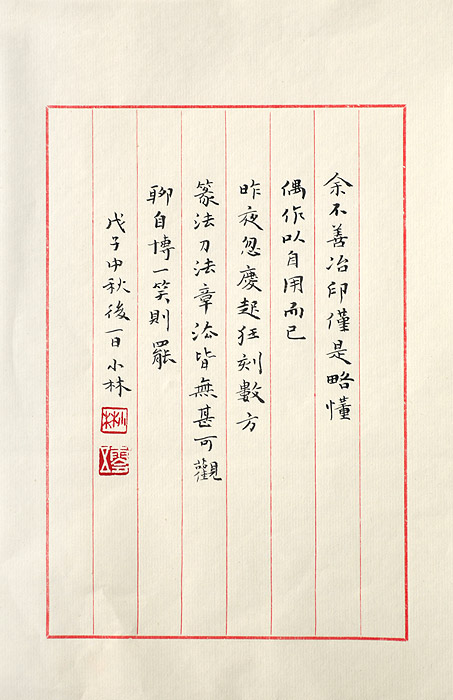 余不善冶印僅是略懂
偶作以自用而已
昨夜忽慶起狂刻數方
篆法刀法章法皆無甚可觀
聊自博一笑則罷
戊子中秋後一日小林
林